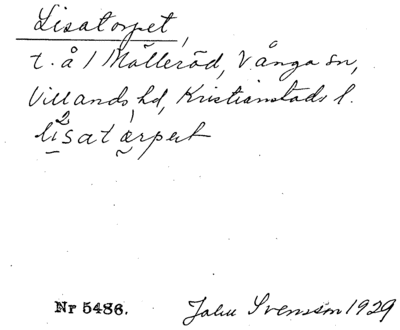 Lisatorpet,
t. å 1 Mölleröd, Vånga sn,
Villands hd, Kristianstads l.
li²satàrpet
Nr 5486. John Svensson 1929